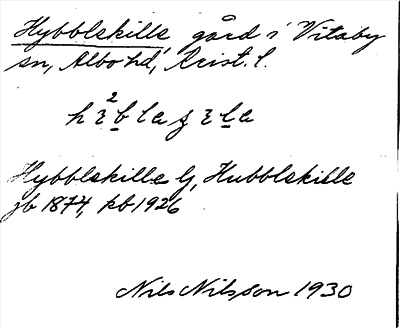 Hybblekille gård i Vitaby
sn, Albo hd, Krist. l.
Hybblekille Lj, Hubblekille
jb 1874, kb 1926
Nils Nilsson 1930